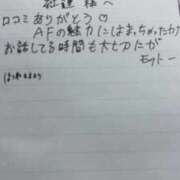 社運 様へ
口コミありがとう♡
AFの魅力にはまっちゃったか
お話してる時間も大切だが
モットー